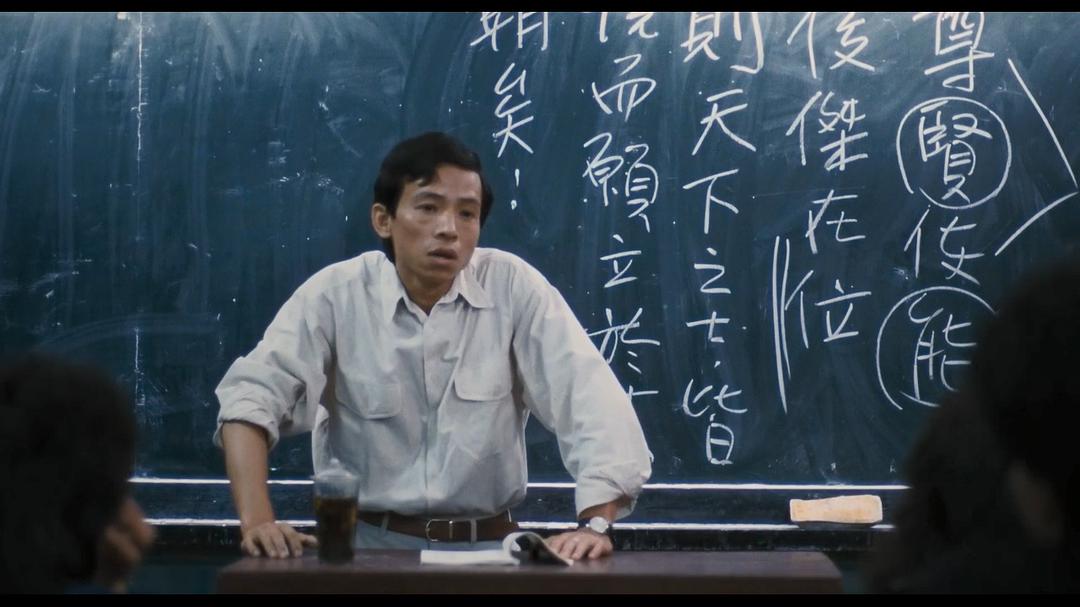 尊賢使能
俊傑在位
則天下之士皆
悅而願立於
朝矣!